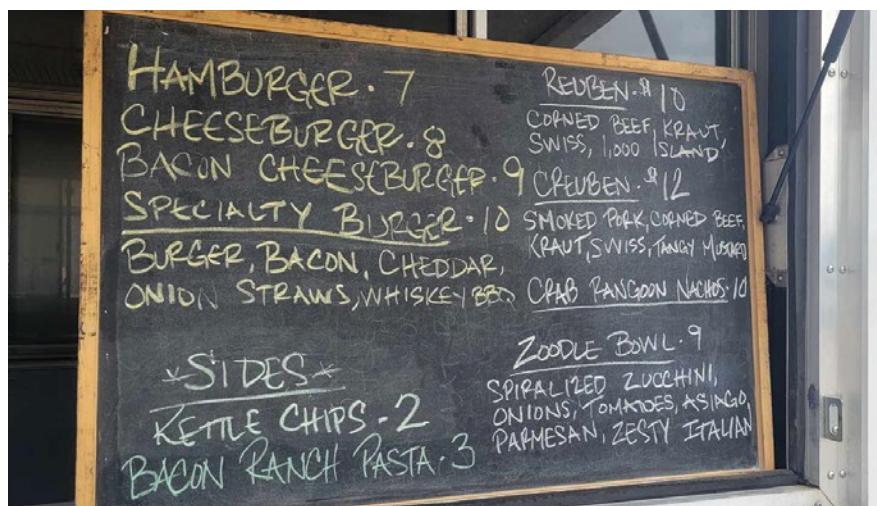 HAMBURGER · 7
CHEESEBURGER · 8
BACON CHEESEBURGER · 9
SPECIALTY BURGER · 10
BURGER, BACON, CHEDDAR,
ONION STRAWS, WHISKEY BBQ
*SIDES*
KETTLE CHIPS - 2
BACON RANCH PASTA · 3
REUBEN · $10
CORNED BEEF, KRAUT,
SWISS, 1,000 ISLAND
CREUBEN · $12
SMOKED PORK, CORNED BEEF,
KRAUT, SWISS, TANGY MUSTARD
CRAB RANGOON NACHOS · 10
ZOODLE BOWL · 9
SPIRALIZED ZUCCHINI,
ONIONS, TOMATOES, ASIAGO,
PARMESAN, ZESTY ITALIAN